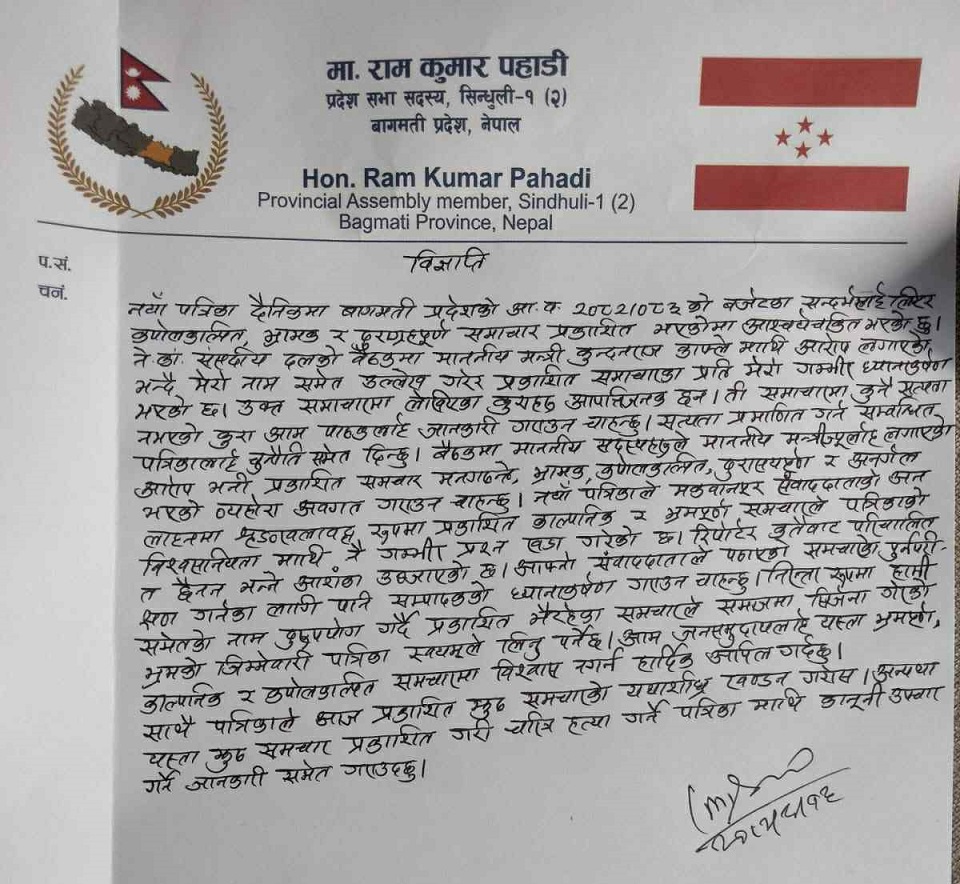 मा. राम कुमार पहाडी
प्रदेश सभा सदस्य, सिन्धुली-१ (२)
बागमती प्रदेश, नेपाल
Hon. Ram Kumar Pahadi
Provincial Assembly member, Sindhuli-1 (2)
Bagmati Province, Nepal
प.सं.
चनं.
विज्ञप्ति
नयाँ पत्रिका दैनिकमा बागमती प्रदेशको आ.व. २०८२।०८३ को बजेटका सन्दर्भलाई लिएर
कपोलकल्पित, भ्रामक र दुराग्रहपूर्ण समाचार प्रकाशित भएकोमा आश्चर्यचकित भएको छु।
ने.कां. संसदीय दलको बैठकमा माननीय मन्त्री कुन्दनराज काफ्ले माथि आरोप लगाएको
भन्दै मेरो नाम समेत उल्लेख गरेर प्रकाशित समाचारका प्रति मेरो गम्भीर ध्यानाकर्षण
भएको छ। उक्त समाचारमा लेखिएका कुराहरु आपत्तिजनक छन्। ती समाचारमा कुनै सत्यता
नभएको कुरा आम पाठकलाई जानकारी गराउन चाहन्छु। सत्यता प्रमाणित गर्न सम्बन्धित
पत्रिकालाई चुनौति समेत दिन्छु। बैठकमा माननीय सदस्यहरुले माननीय मन्त्रीज्यूलाई लगाएको
आरोप भनी प्रकाशित समचार मनगढन्ते, भ्रामक, कपोलकल्पित, दुरासयपूर्ण र अनर्गल
भएको व्यहोरा अवगत गराउन चाहन्छु। नयाँ पत्रिकाले मकवानपुर संवाददाताको
लाइनमा श्रृङखलावद्ध रूपमा प्रकाशित काल्पनिक र भ्रमपूर्ण समचारले पत्रिकाको
विश्वसनियता माथि नै गम्भीर प्रश्न खडा गरेको छ। रिपोर्टर कतैबाट परिचालित
त छैनन भन्ने आशंका उब्जाएको छ। आफ्नो संवाददाताले पठाएको समचारको पुर्नपरी-
क्षण गर्नका लागि पनि सम्पादकको ध्यानाकर्षण गराउन चाहन्छु। निरन्तर रूपमा हामी
समेतको नाम दुरुपयोग गर्दै प्रकाशित भैरहेका समचारले समाजमा सिर्जना गरेको
भ्रमको जिम्मेवारी पत्रिका स्वयम्‌ले लिनु पर्नेछ। आम जनसमुदायलाई यस्ता भ्रमपूर्ण,
काल्पनिक र कपोलकल्पित समचारमा विश्वास नगर्न हार्दिक अपिल गर्दछु।
साथै पत्रिकाले आज प्रकाशित झुठ समचारको यथाशीघ्र खण्डन गरोस। अन्यथा
यस्ता झुठ समचार प्रकाशित गरी चरित्र हत्या गर्ने पत्रिका माथि कानूनी उपचार
गर्ने जानकारी समेत गराउदछु।